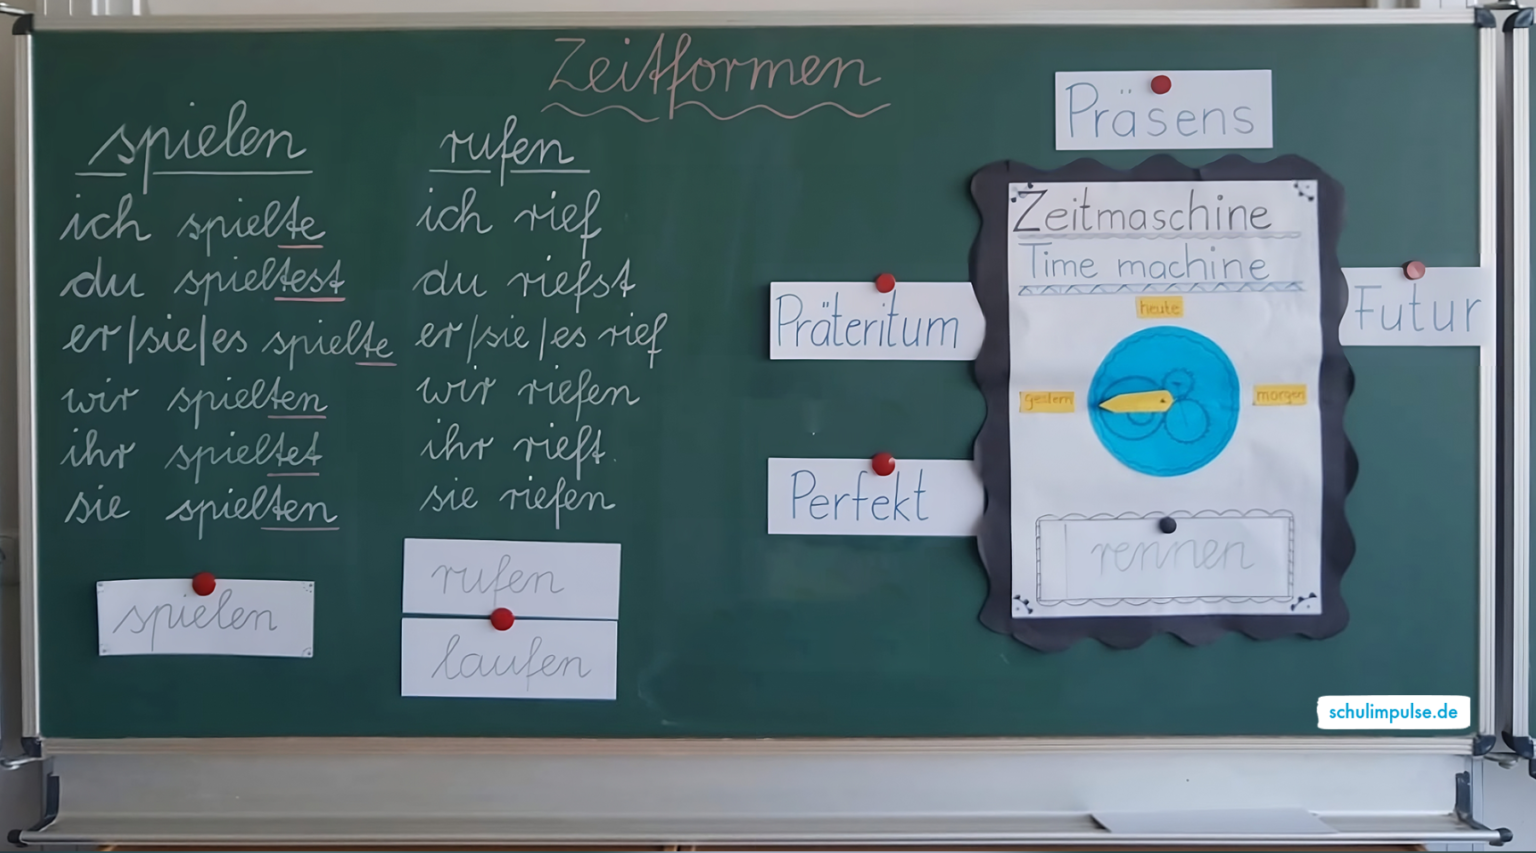 Zeitformen
spielen
ich spielte
du spieltest
er/sie/es spielte
wir spielten
ihr spieltet
sie spielten
spielen
rufen
ich rief
du riefst
er/sie/es rief
wir riefen
ihr rieft.
sie riefen
rufen
laufen
Präsens
Präteritum
Perfekt
Futur
Zeitmaschine
Time machine
heute
gestern
morgen
rennen
schulimpulse.de